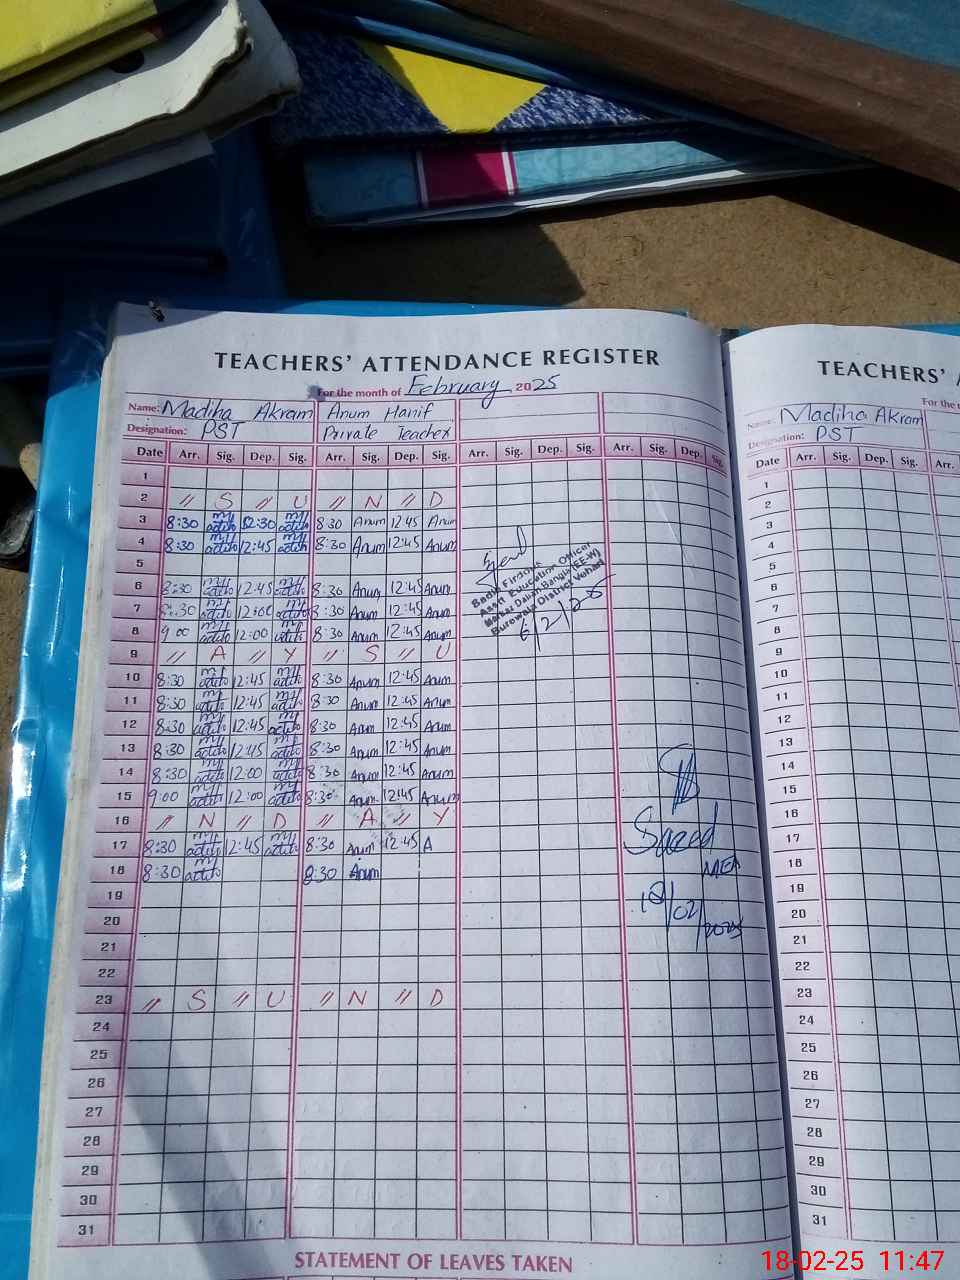 TEACHERS' ATTENDANCE REGISTER
For the month of February 2025
Name: Madiha Akram Anum Hanif
Designation: PST Private Teacher
Date Arr. Sig. Dep. Sig. Arr. Sig. Dep. Sig. Arr. Sig. Dep. Sig. Arr. Sig. Dep. Sig.
1
2 // S // U // N // D
3 8:30 12:30 8:30 Anum 12:45 Anum
4 8:30 12:45 8:30 Anum 12:45 Anum
5
6 8:30 12:45 8:30 Anum 12:45 Anum
7 8:30 12:00 8:30 Anum 12:45 Anum
8 9:00 12:00 8:30 Anum 12:45 Anum
9 // A // Y // S // U
10 8:30 12:45 8:30 Anum 12:45 Anum
11 8:30 12:45 8:30 Anum 12:45 Anum
12 8:30 12:45 8:30 Anum 12:45 Anum
13 8:30 12:45 8:30 Anum 12:45 Anum
14 8:30 12:00 8:30 Anum 12:45 Anum
15 9:00 12:00 8:30 Anum 12:45 Anum
16 // N // D // A // Y
17 8:30 12:45 8:30 Anum 12:45 A
18 8:30 8:30 Anum
19
20
21
22
23 // S // U // N // D
24
25
26
27
28
29
30
31
Firdous
Asstt. Education Officer
Markaz (EE-W)
Burewala District Vehari
6/2/25
Saeed
MEA
18/02/2025
STATEMENT OF LEAVES TAKEN
TEACHERS'
For the
Name: Madiha Akram
Designation: PST
Date Arr. Sig. Dep. Sig. Arr.
1
2
3
4
5
6
7
8
9
10
11
12
13
14
15
16
17
18
19
20
21
22
23
24
25
26
27
28
29
30
31
18-02-25 11:47